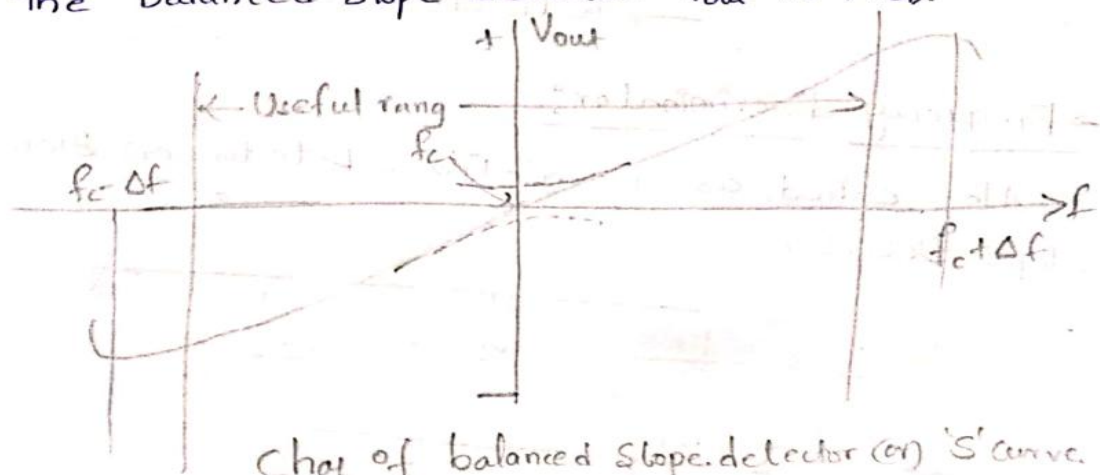 The balanced slope
+ Vout
Useful rang
fc
fc - Δf
f
fc + Δf
-
Char of balanced slope.detector (or) 'S' curve.